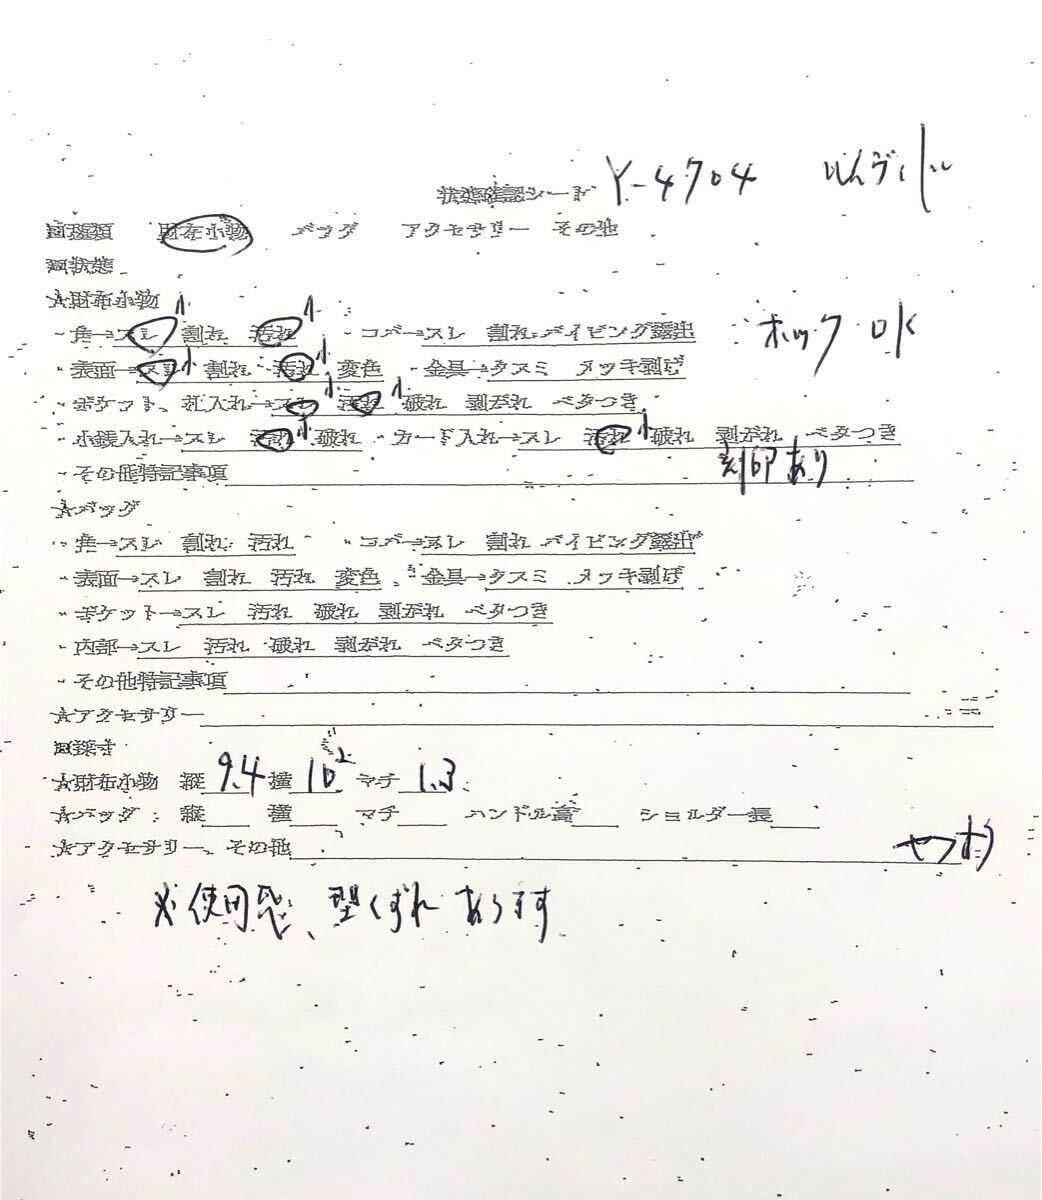 状態確認シート Y-4704
回種類 財布小物 バッグ アクセサリー その他
回状態
☆財布小物
・角→スレ小 割れ 汚れ小 ・コバ→スレ 割れ パイピング露出 ホック OK
・表面→スレ小 割れ 汚れ小 変色 ・金具→クスミ メッキ剥げ
・ポケット、札入れ→スレ小 汚れ小 破れ 剥がれ ベタつき
・小銭入れ→スレ 汚れ小 破れ ・カード入れ→スレ 汚れ小 破れ 剥がれ ベタつき
・その他特記事項 刻印あり
☆バッグ
・角→スレ 割れ 汚れ ・コバ→スレ 割れ パイピング露出
・表面→スレ 割れ 汚れ 変色 ・金具→クスミ メッキ剥げ
・ポケット→スレ 汚れ 破れ 剥がれ ベタつき
・内部→スレ 汚れ 破れ 剥がれ ベタつき
・その他特記事項
☆アクセサリー
回採寸
☆財布小物 縦 9.4 横 10.2 マチ 1.3
☆バッグ: 縦 横 マチ ハンドル高 ショルダー長
☆アクセサリー、その他
※使用感、型くずれあります